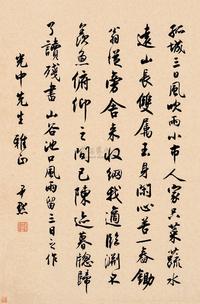 孤城三日風吹雨小市人家只菜蔬水
遠山長雙屬玉身閑心苦一舂鋤
翁從旁舍來收網我適臨淵不
羨魚俯仰之間已陳迹暮牕歸
了讀殘書 山谷池口風雨留三日之作
光中先生雅正 尹默